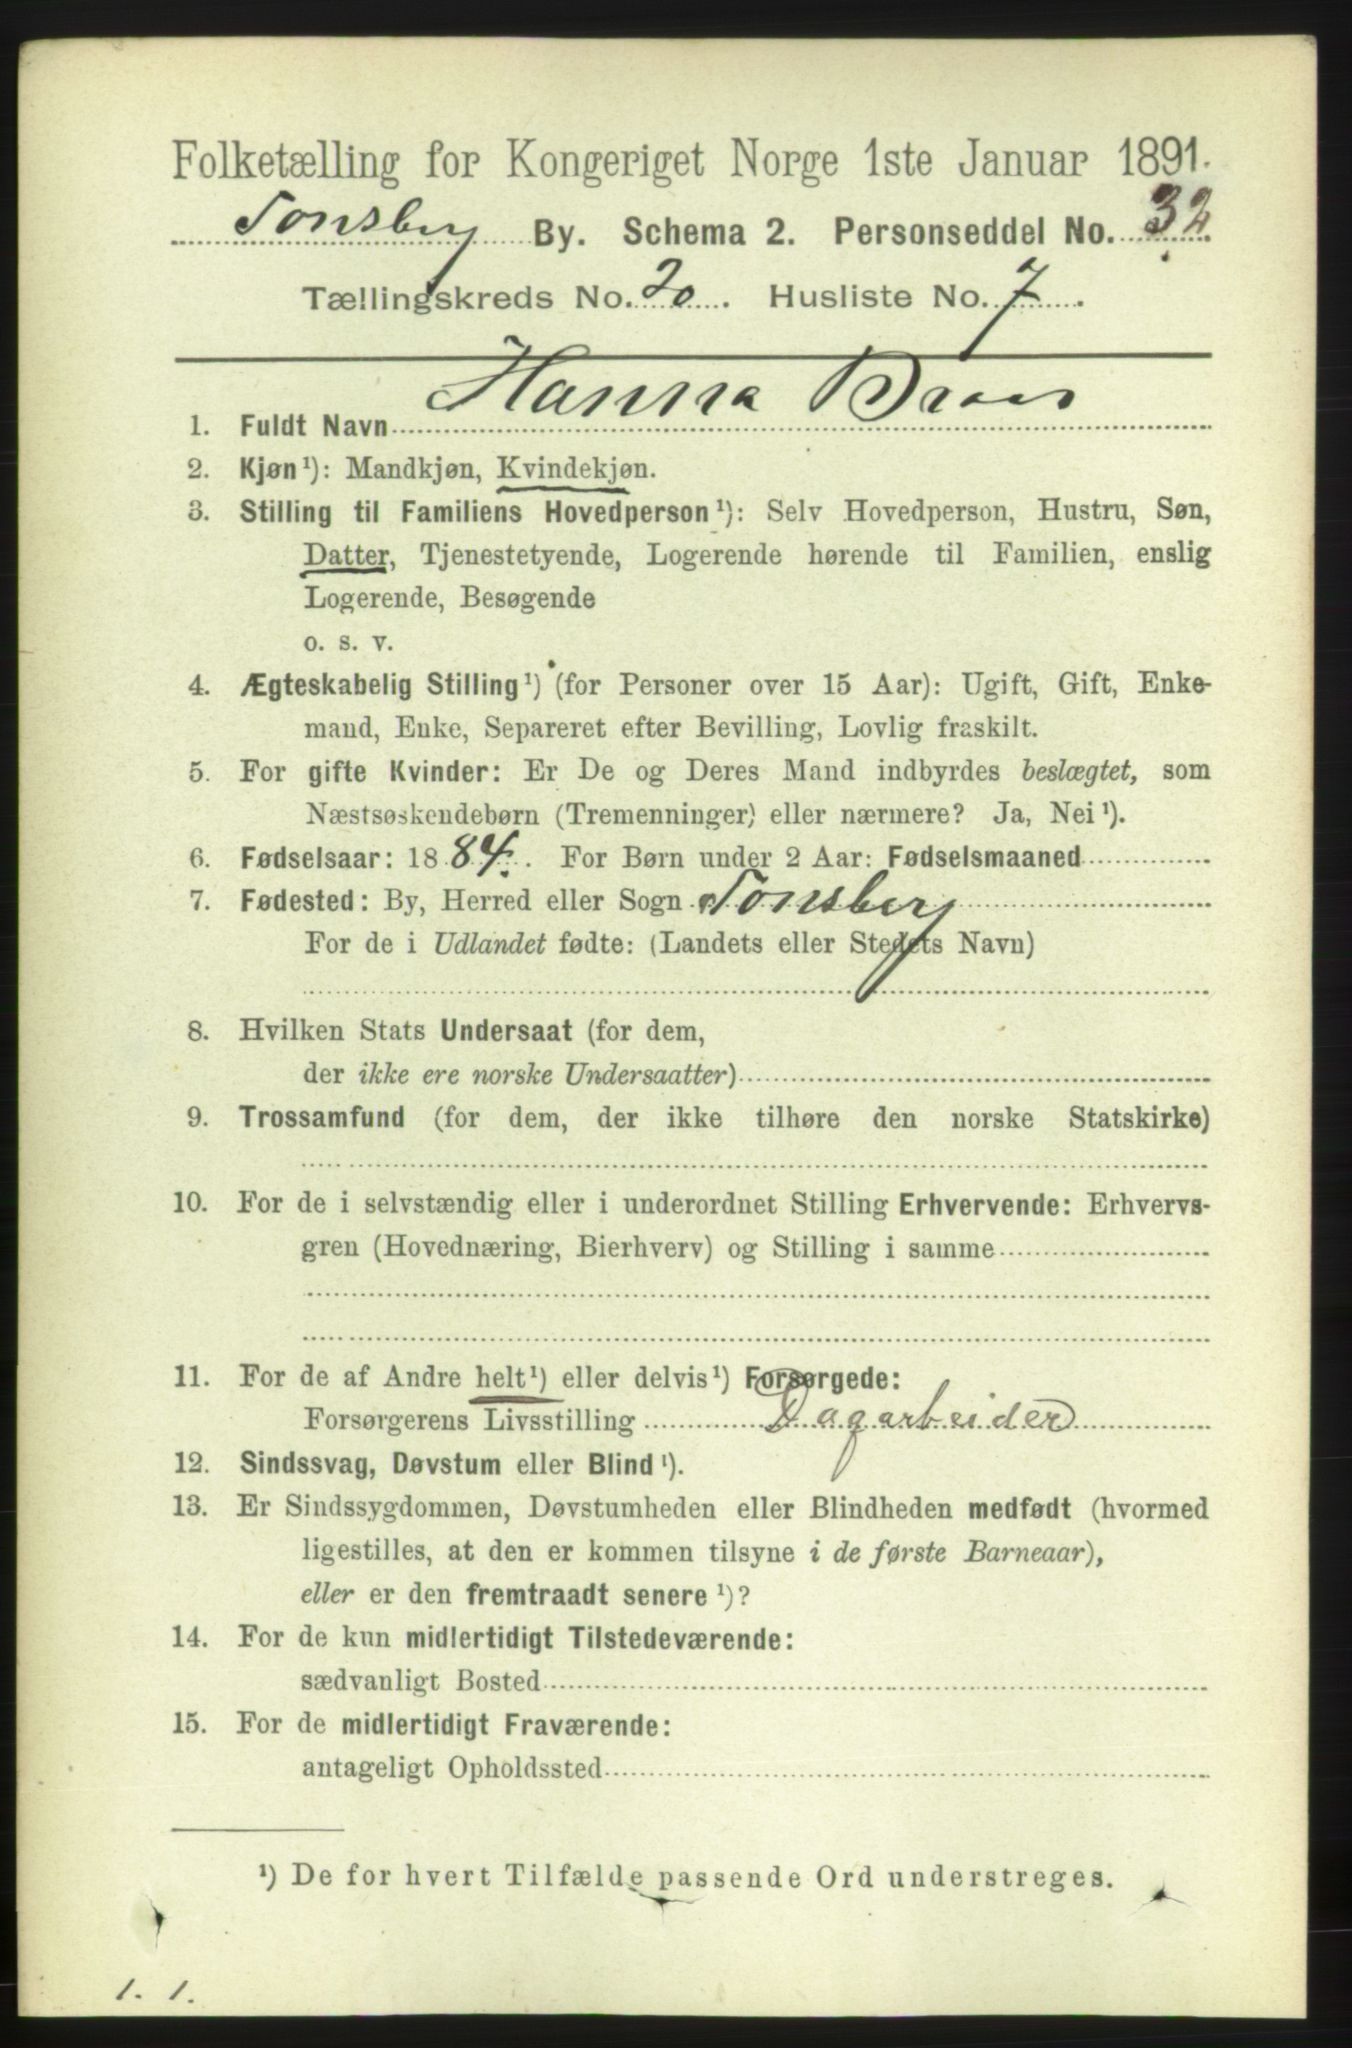 Folketælling for Kongeriget Norge 1ste Januar 1891.
Tonsberg By. Schema 2. Personseddel No. 32
Tællingskreds No. 20. Husliste No. 7.
1. Fuldt Navn Hanna
2. Kjøn¹): Mandkjøn, Kvindekjøn.
3. Stilling til Familiens Hovedperson¹): Selv Hovedperson, Hustru, Søn,
Datter, Tjenestetyende, Logerende hørende til Familien, enslig
Logerende, Besøgende
o. s. v.
4. Ægteskabelig Stilling¹) (for Personer over 15 Aar): Ugift, Gift, Enke-
mand, Enke, Separeret efter Bevilling, Lovlig fraskilt.
5. For gifte Kvinder: Er De og Deres Mand indbyrdes beslægtet, som
Næstsøskendebørn (Tremenninger) eller nærmere? Ja, Nei¹).
6. Fødselsaar: 1884. For Børn under 2 Aar: Fødselsmaaned
7. Fødested: By, Herred eller Sogn Tonsberg
For de i Udlandet fødte: (Landets eller Stedets Navn)
8. Hvilken Stats Undersaat (for dem,
der ikke ere norske Undersaatter)
9. Trossamfund (for dem, der ikke tilhøre den norske Statskirke)
10. For de i selvstændig eller i underordnet Stilling Erhvervende: Erhvervs-
gren (Hovednæring, Bierhverv) og Stilling i samme
11. For de af Andre helt¹) eller delvis¹) Forsørgede:
Forsørgerens Livsstilling Dagarbeider
12. Sindssvag, Døvstum eller Blind¹).
13. Er Sindssygdommen, Døvstumheden eller Blindheden medfødt (hvormed
ligestilles, at den er kommen tilsyne i de første Barneaar),
eller er den fremtraadt senere¹)?
14. For de kun midlertidigt Tilstedeværende:
sædvanligt Bosted
15. For de midlertidigt Fraværende:
antageligt Opholdssted
¹) De for hvert Tilfælde passende Ord understreges.
1. 1.